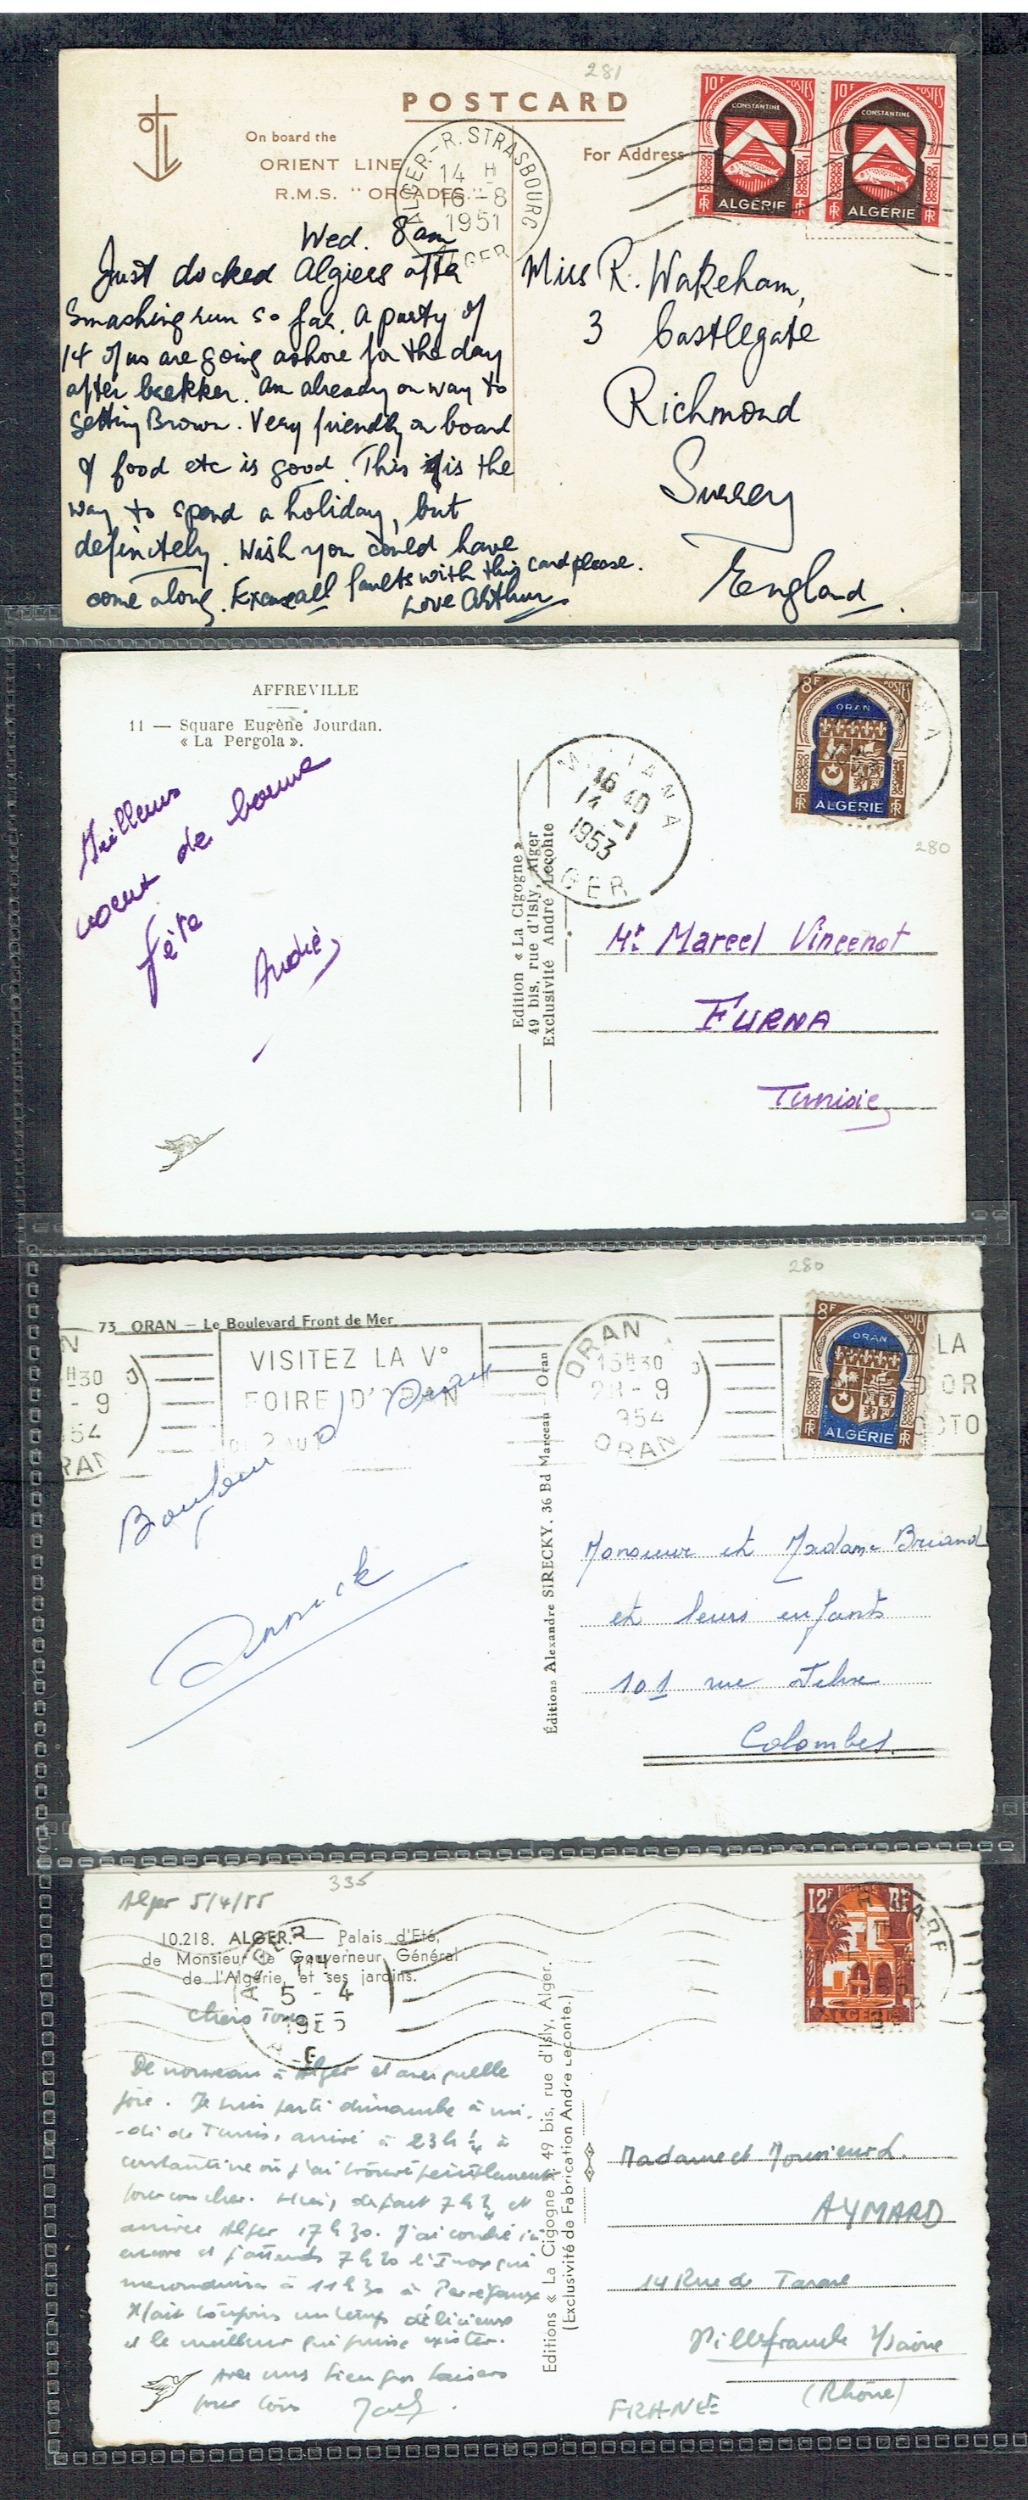 281
POSTCARD
On board the
ORIENT LINE
R.M.S. "ORCADES"
For Address
10F POSTES
CONSTANTINE
RF ALGERIE RF
10F POSTES
CONSTANTINE
RF ALGERIE RF
ALGER-R. STRASBOURG
14 H
16-8
1951
ALGER
Wed. 8am
Just docked Algiers after
Smashing run so far. A party of
14 of us are going ashore for the day
after brekker. Am already on way to
getting Brown. Very friendly on board
& food etc is good. This is the
way to spend a holiday, but
definitely. Wish you could have
come along. Excuse all faults with this card please.
Love Arthur
Miss R. Wakeham,
3 Castlegate
Richmond
Surrey
England.
AFFREVILLE
11 — Square Eugène Jourdan.
« La Pergola ».
8F POSTES
ORAN
RF ALGÉRIE RF
280
16 40
14 -1
1953
GER
Meilleurs
voeux de bonne
fête
André
Edition « La Cigogne »
49 bis, rue d'Isly, Alger
Exclusivité André Leconte
Mr Marcel Vincenot
FURNA
Tunisie
280
73 ORAN — Le Boulevard Front de Mer
8F POSTES
ORAN
RF ALGÉRIE RF
VISITEZ LA V°
FOIRE D'ORAN
ORAN
13H30
28-9
1954
ORAN
Annick
Éditions Alexandre SIRECKY, 36 Bd Marceau - Oran
Monsieur et Madame Briand
et leurs enfants
101 rue
Colombes.
335
Alger 5/4/55
10.218. ALGER. — Palais d'Eté,
de Monsieur le Gouverneur Général
de l'Algérie, et ses jardins.
12F RF
ALGERIE
5 - 4
1955
Chers Tous
De nouveau à Alger et avec quelle
joie. Je suis parti dimanche à mi-
-di de Tunis, arrivé à 23h 1/4 à
Constantine où j'ai trouvé péniblement
pour coucher. Hier, départ 7h 1/2 et
arrivée Alger 17h30. J'ai couché ici
encore et j'attends 7h20 l'Inox qui
me conduira à 11h30 à Perrégaux
Il fait toujours un temps délicieux
et le meilleur qui puisse exister.
Avec mes bien gros baisers
pour tous
Editions « La Cigogne » 49 bis, rue d'Isly, Alger.
(Exclusivité de Fabrication André Leconte.)
Madame et Monsieur L.
AYMARD
14 Rue de Tarare
Villefranche s/saône
(Rhône)
FRANCE